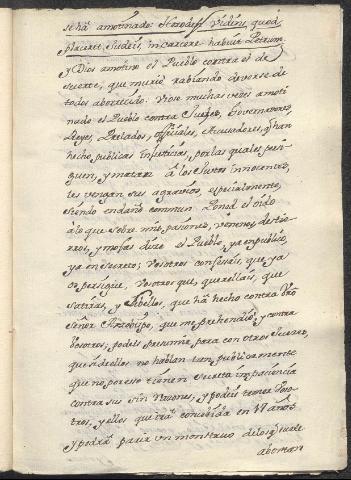 se há amotinado. Herodes, videns quod
placeret Judeis, in carcere habuit Petrum.
y Dios amotino el Pueblo contra el de
suerte, que murio rabiando de verse de
todos aborrecido. Viose muchas vezes amoti
nado el Pueblo contra Juezes, Governadores,
Reyes, Prelados, officiales, Acusadores, q̃ han
hecho publicas Injusticias, por las quales persi
guen, y matan a los Justos innocentes,
les vengan sus agravios, especialmente,
siendo en daño commun. Poned el oido
a lo que sobre mis pasiones, venenos, destie
rros, y mofas dize el Pueblo, ya en publico,
ya en secreto; Vosotros confesais, que ya
os persigue, Vosotros que, querellais, que
satiras, y libellos, que há hecho contra Vr̃o
Señor Arzobispo, que me prehendio, y contra
Vosotros; podeis presumir, para con otros Juezes,
que si de ellos no hablan tan publicamente
que no por esto tienen suelta impaciencia
contra sus sin razones, y podeis temer Voso
tros, y ellos que ira concebida en 17 años
y podra parir un monstruo de los q̃
abortan